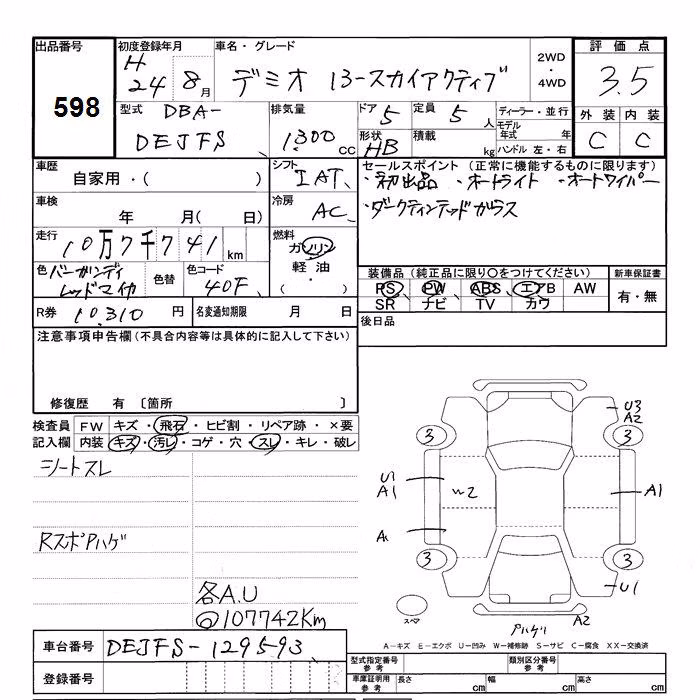 出品番号 初度登録年月 車名・グレード 2WD・4WD 評価点
598 H24 8月 デミオ 13-スカイアクティブ 3.5
型式 DBA- 排気量 ドア 5 定員 5人 ディーラー・並行 外装 内装
DEJFS 1300cc 形状 HB 積載 kg モデル年式 年 C C
ハンドル 左・右
車歴 シフト セールスポイント (正常に機能するものに限ります)
自家用・( ) IAT ・初出品 ・オートライト ・オートワイパー
車検 冷房 ・ダークティンテッドガラス
年 月( 日) AC
走行 燃料
10万7千741km ガソリン
軽油・( )
色 バーガンディ 色替 色コード 装備品 (純正品に限り○をつけてください) 新車保証書
レッドマイカ 40F PS PW ABS エアB AW 有・無
SR ナビ TV カワ
R券 10,310円 名変通知期限 月 日 後日品
注意事項申告欄 (不具合内容等は具体的に記入して下さい)
修復歴 有 〔箇所 〕
検査員 FW キズ・飛石・ヒビ割・リペア跡・×要
記入欄 内装 キズ・汚レ・コゲ・穴・スレ・キレ・破レ
シートスレ
RスポAハゲ
各A.U
◎107742Km
U3
A2
3 3
U1
A1 2 A1
3 3
U1
スペア A2
A-キズ E-エクボ U-凹み W-補修跡 S-サビ C-腐食 XX-交換済
車台番号 DEJFS-129593 型式指定番号 参考 類別区分番号 参考
登録番号 車庫証明用 参考 長さ cm 幅 cm 高さ cm